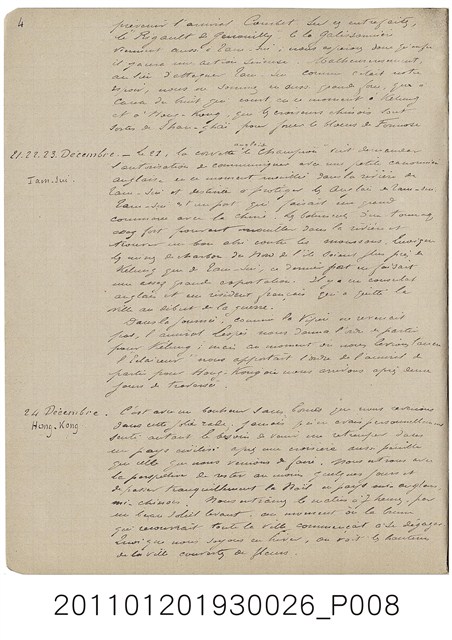 4
prévenir l'amiral Courbet. Sur ces entrefaites,
le Rigault de Genouilly et la Galissonnière
viennent aussi à Tam-Sui; nous espérons donc qu'enfin
il y aura une action sérieuse. Malheureusement,
au lieu d'attaquer Tam-Sui comme c'était notre
espoir, nous ne servons en aucun grand feu, que à
cause du bruit qui court en ce moment à Kelung
et à Hong-Kong que les croiseurs chinois sont
sortis de Shang-Haï pour forcer le blocus de Formose
21.22.23. Décembre. - Le 22, la corvette anglaise le Champion vint demander
Tam-Sui.
l'autorisation de communiquer avec une petite canonnière
anglaise en ce moment mouillée dans la rivière de
Tam-Sui et destinée à protéger les Anglais de Tam-Sui.
Tam-Sui est un port qui faisait un grand
commerce avec la Chine. Les bateaux d'un tonnage
assez fort peuvent mouiller dans la rivière et
trouver un bon abri contre les moussons. Quoique
les mines de charbon du Nord de l'île soient plus près de
Kelung que de Tam-Sui, ce dernier port en faisait
une assez grande exportation. Il y a un consulat
anglais et un résident français qui a quitté la
ville au début de la guerre.
Dans la journée, comme la Vipère ne revenait
pas, l'amiral Lespès nous donna l'ordre de partir
pour Kelung; mais au moment où nous levions l'ancre
l'"Eclaireur" nous apportait l'ordre de l'amiral de
partir pour Hong-Kong où nous arrivons après deux
jours de traversée.
24 Décembre.
Hong-Kong
C'est avec un bonheur sans bornes que nous revenons
dans cette jolie rade; jamais je n'avais personnellement
senti autant le besoin de venir me retremper dans
un pays civilisé après une croisière aussi pénible
que celle que nous venons de faire. Nous avions
la perspective de rester au moins quelques jours et
de passer tranquillement la Noël en pays mi-anglais,
mi-chinois. Nous entrâmes le matin à 7 heures, par
un beau soleil levant, au moment où la brume
qui recouvrait toute la ville commençait à se dégager.
Quoique nous soyons en hiver, on voit les hauteurs
de la ville couvertes de fleurs.
201101201930026_P008